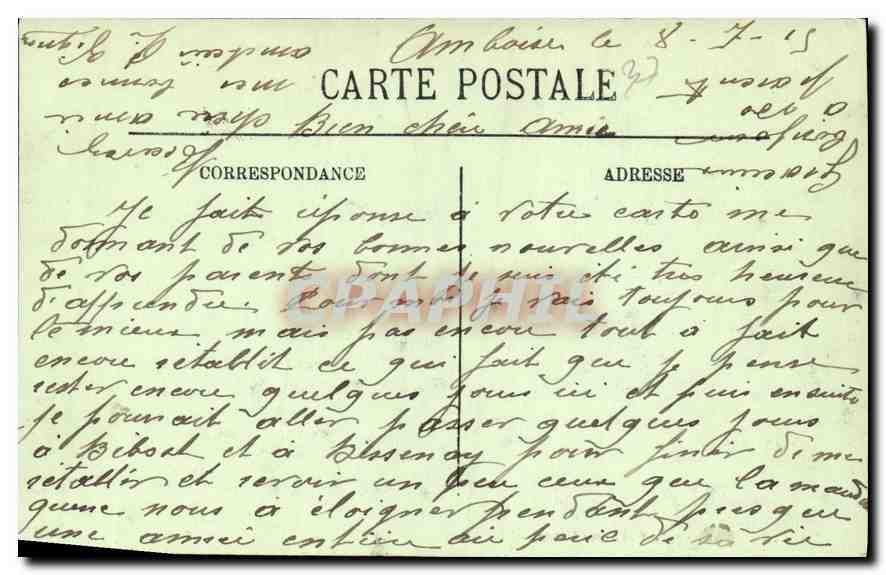 Amboise le 8-7-15
CARTE POSTALE
Bien chère Amie
CORRESPONDANCE
ADRESSE
Je fait réponse à votre carte me
donnant de vos bonnes nouvelles ainsi que
de vos parents dont je suis été très heureux
d'apprendre. Pour moi je vais toujours pour
le mieux mais pas encore tout à fait
encore rétablit ce qui fait que je pense
rester encore quelques jours ici et puis ensuite
je pourrait aller passer quelques jours
à et à pour finir de me
rétablir et revoir un peu ceux que la maudite
guerre nous a éloigner pendant presque
une année entière au péril de sa vie
CPAPHIL